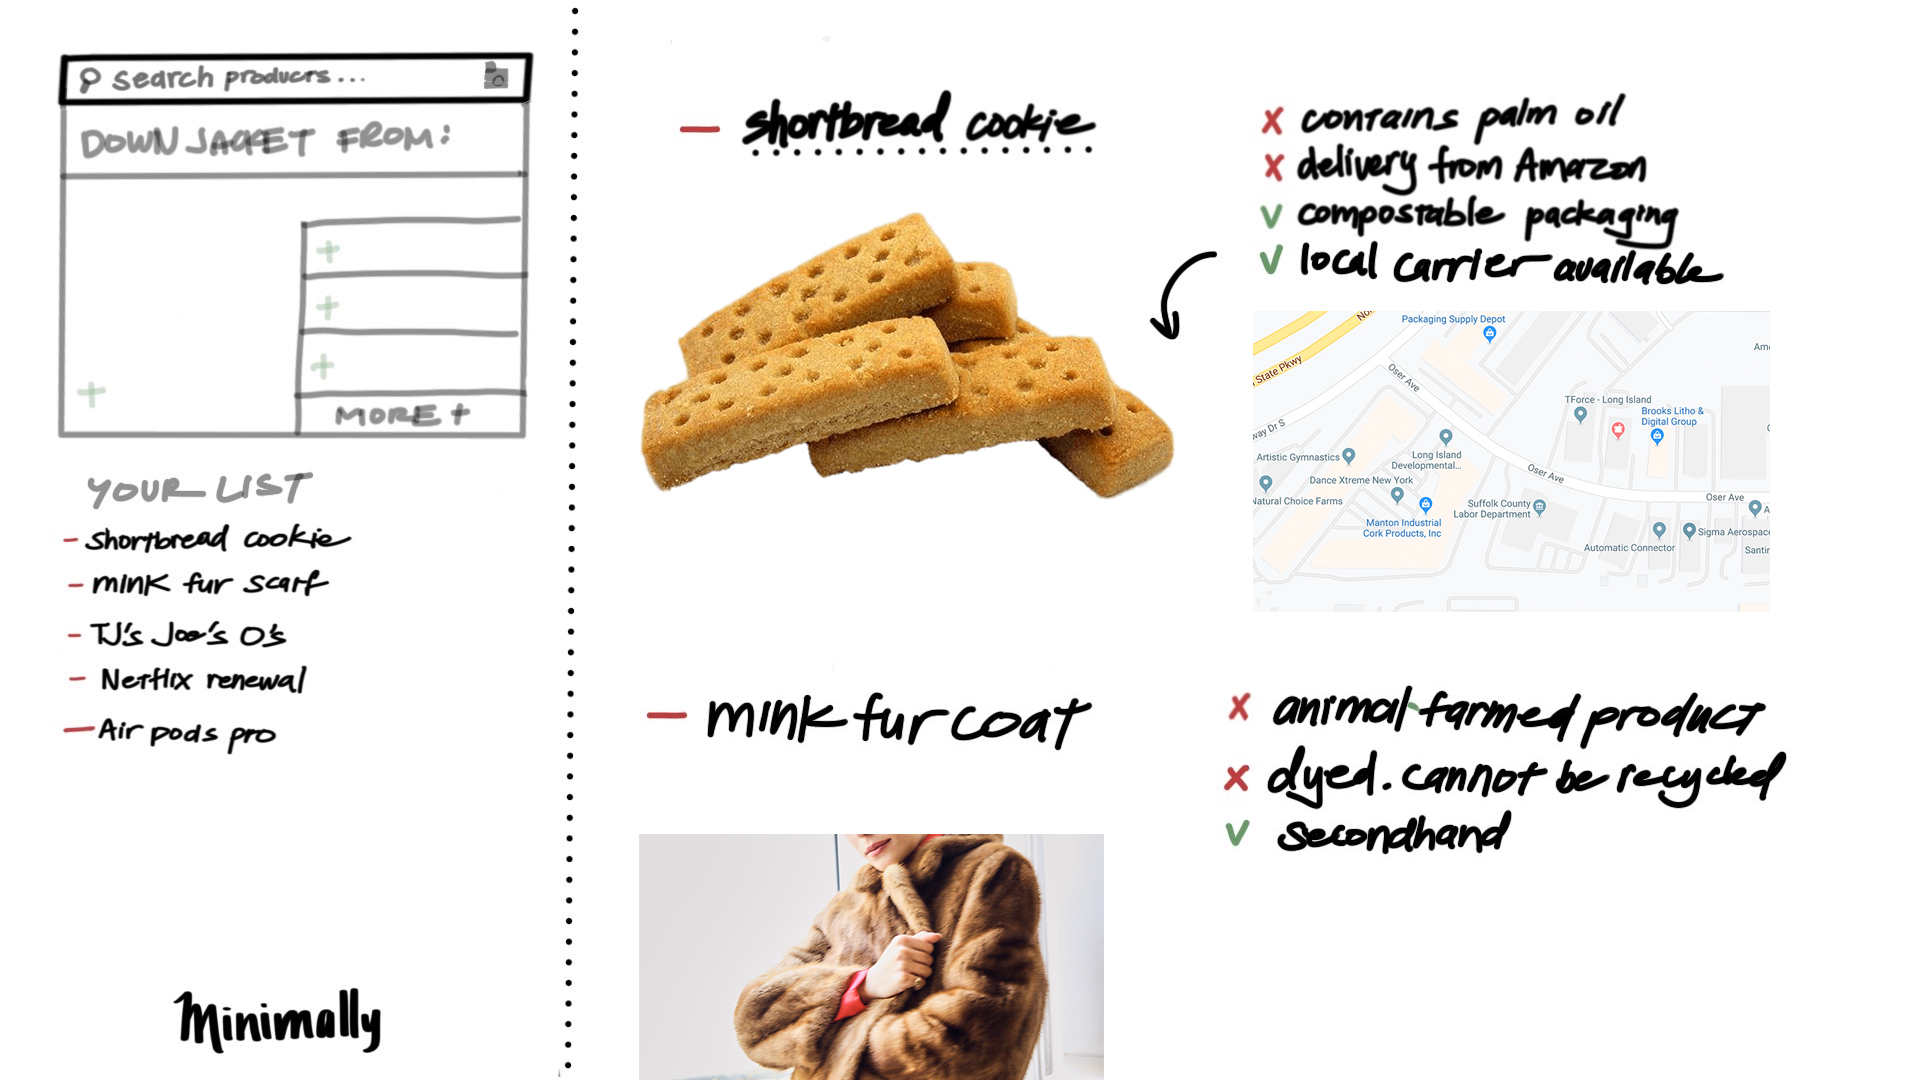 search products...
DOWN JACKET FROM:
+
+
+
+
MORE +
YOUR LIST
- shortbread cookie
- mink fur scarf
- TJ's Joe's O's
- Netflix renewal
- Air pods pro
Minimally
- shortbread cookie
x contains palm oil
x delivery from Amazon
✓ compostable packaging
✓ local carrier available
Packaging Supply Depot
State Pkwy
Oser Ave
way Dr S
TForce - Long Island
Brooks Litho &
Digital Group
Artistic Gymnastics
Long Island
Developmental...
Dance Xtreme New York
Natural Choice Farms
Oser Ave
Oser Ave
Suffolk County
Labor Department
Manton Industrial
Cork Products, Inc
Sigma Aerospace
Automatic Connector
- mink fur coat
x animal-farmed product
x dyed. cannot be recycled
✓ secondhand